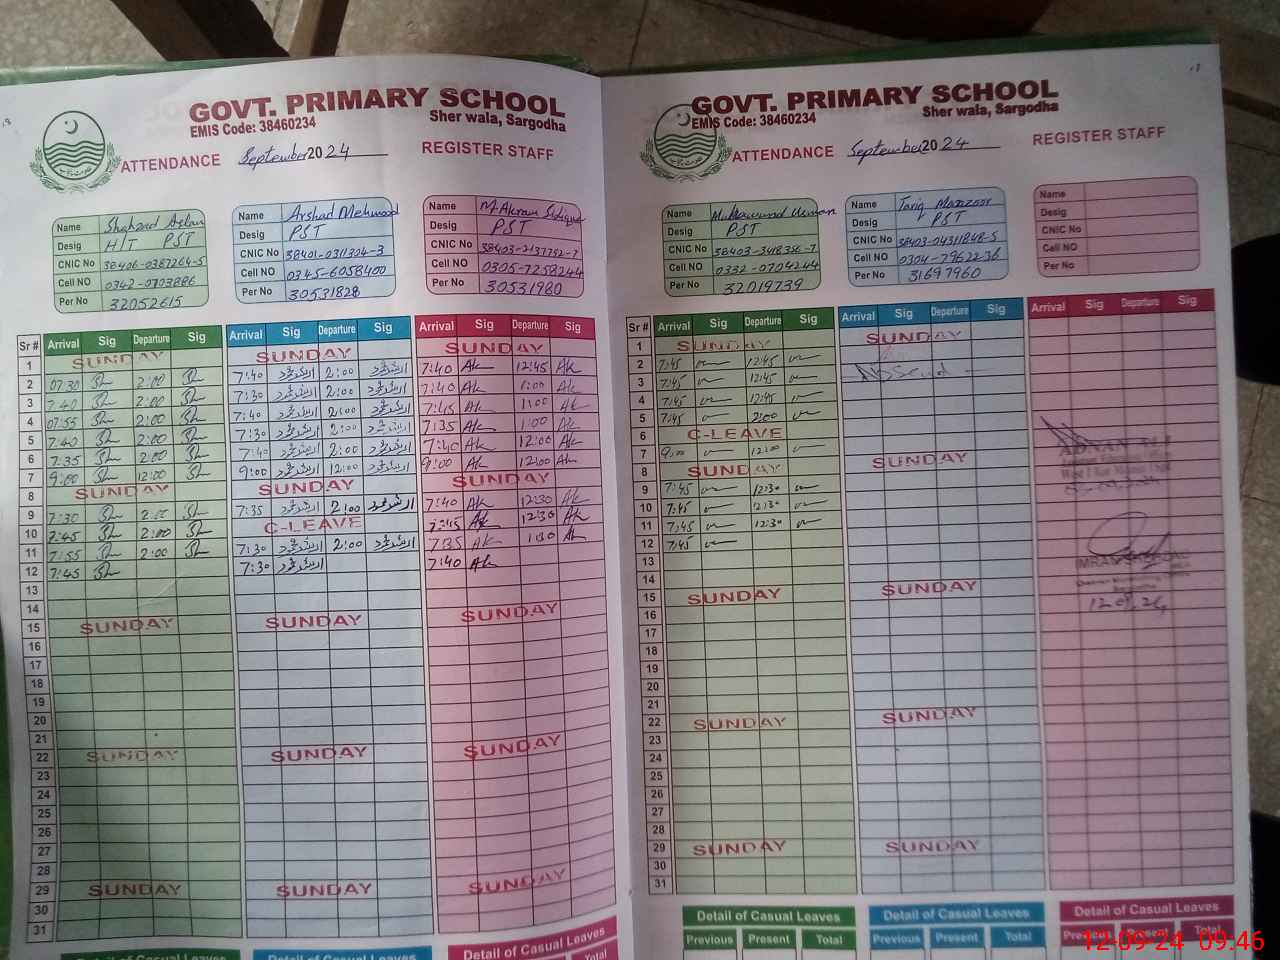 GOVT. PRIMARY SCHOOL
EMIS Code: 38460234
Sher wala, Sargodha
ATTENDANCE September 2024 REGISTER STAFF
Name
Desig H/T PST
CNIC No 38406-0387264-5
Cell NO 0342-0703886
Per No 32052615
Name Arshad Mehmood
Desig PST
CNIC No 38401-0311304-3
Cell NO 0345-6058400
Per No 30531828
Name M. Akram
Desig PST
CNIC No 38403-2137792-7
Cell NO 0305-7258244
Per No 30531980
Sr # Arrival Sig Departure Sig Arrival Sig Departure Sig Arrival Sig Departure Sig
1 SUNDAY SUNDAY SUNDAY
2 07:30 2:00 7:40 ارشد محمود 2:00 ارشد محمود 7:40 Ak 12:45 Ak
3 7:40 2:00 7:30 ارشد محمود 2:00 ارشد محمود 7:40 Ak 1:00 Ak
4 07:55 2:00 7:40 ارشد محمود 2:00 ارشد محمود 7:45 Ak 1:00 Ak
5 7:40 2:00 7:30 ارشد محمود 2:00 ارشد محمود 7:35 Ak 1:00 Ak
6 7:35 2:00 7:40 ارشد محمود 2:00 ارشد محمود 7:40 Ak 12:00 Ak
7 9:00 12:00 9:00 ارشد محمود 12:00 ارشد محمود 9:00 Ak 12:00 Ak
8 SUNDAY SUNDAY SUNDAY
9 7:30 2:00 7:35 ارشد محمود 2:00 ارشد محمود 7:40 Ak 12:30 Ak
10 7:45 2:00 C-LEAVE 7:45 Ak 12:30 Ak
11 7:55 2:00 7:30 ارشد محمود 2:00 ارشد محمود 7:35 Ak 1:30 Ak
12 7:45 7:30 ارشد محمود 7:40 Ak
13
14
15 SUNDAY SUNDAY SUNDAY
16
17
18
19
20
21
22 SUNDAY SUNDAY SUNDAY
23
24
25
26
27
28
29 SUNDAY SUNDAY SUNDAY
30
31
Detail of Casual Leaves
Total
GOVT. PRIMARY SCHOOL
EMIS Code: 38460234
Sher wala, Sargodha
ATTENDANCE September 2024 REGISTER STAFF
Name Muhammad Usman
Desig PST
CNIC No 38403-3418356-7
Cell NO 0332-0704244
Per No 32019739
Name Tariq Manzoor
Desig PST
CNIC No 38403-04311848-5
Cell NO 0304-7962236
Per No 31697960
Name
Desig
CNIC No
Cell NO
Per No
Sr # Arrival Sig Departure Sig Arrival Sig Departure Sig Arrival Sig Departure Sig
1 SUNDAY SUNDAY
2 7:45 12:45
3 7:45 12:45 Absend
4 7:45 12:45
5 7:45 2:00
6 C-LEAVE
7 9:00 12:00
8 SUNDAY SUNDAY
9 7:45 12:30
10 7:45 12:30
11 7:45 12:30
12 7:45
13
14
15 SUNDAY SUNDAY
16
17
18
19
20
21
22 SUNDAY SUNDAY
23
24
25
26
27
28
29 SUNDAY SUNDAY
30
31
ADNAN ALI
12.09.24
Detail of Casual Leaves Detail of Casual Leaves Detail of Casual Leaves
Previous Present Total Previous Present Total Previous Present Total
12-09-24 09:46